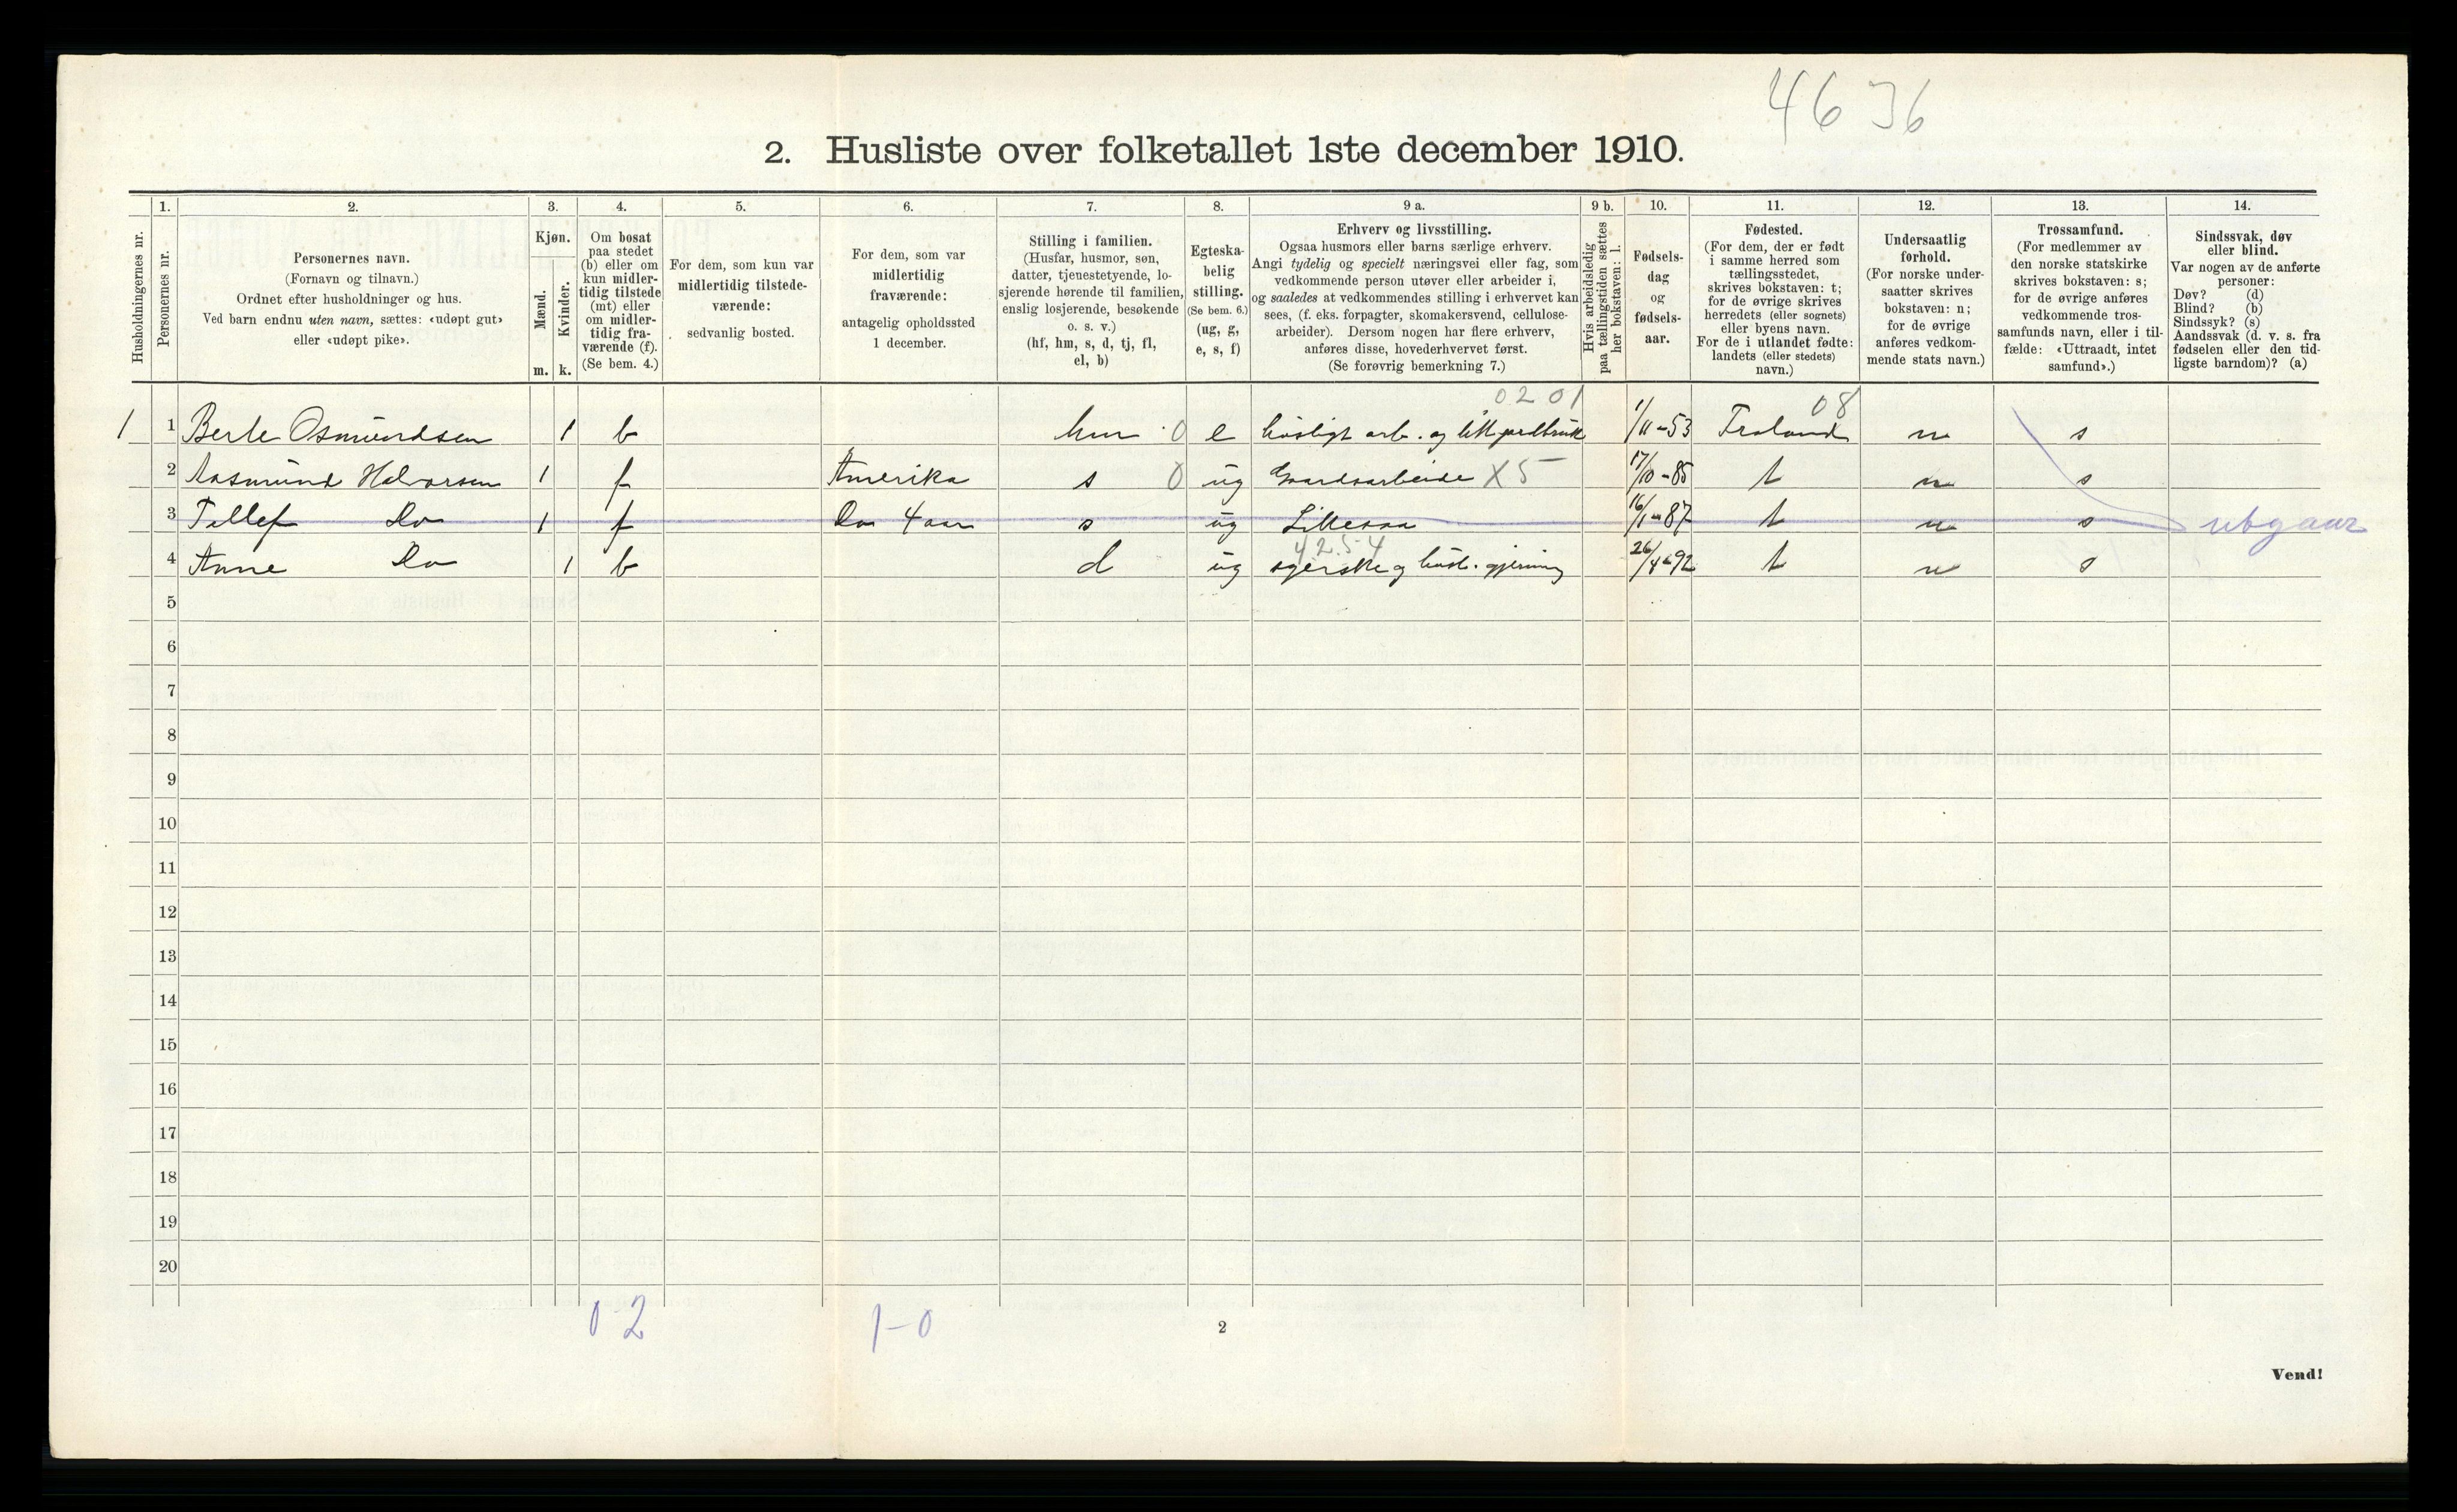 46 36
2. Husliste over folketallet 1ste december 1910.
1. 2. 3. 4. 5. 6. 7. 8. 9 a. 9 b. 10. 11. 12. 13. 14.
Husholdningernes nr.
Personernes nr.
Personernes navn.
(Fornavn og tilnavn.)
Ordnet efter husholdninger og hus.
Ved barn endnu uten navn, sættes: «udøpt gut»
eller «udøpt pike».
Kjøn.
Mænd.
Kvinder.
m. k.
Om bosat
paa stedet
(b) eller om
kun midler-
tidig tilstede
(mt) eller
om midler-
tidig fra-
værende (f).
(Se bem. 4.)
For dem, som kun var
midlertidig tilstede-
værende:
sedvanlig bosted.
For dem, som var
midlertidig
fraværende:
antagelig opholdssted
1 december.
Stilling i familien.
(Husfar, husmor, søn,
datter, tjenestetyende, lo-
sjerende hørende til familien,
enslig losjerende, besøkende
o. s. v.)
(hf, hm, s, d, tj, fl,
el, b)
Egteska-
belig
stilling.
(Se bem. 6.)
(ug, g,
e, s, f)
Erhverv og livsstilling.
Ogsaa husmors eller barns særlige erhverv.
Angi tydelig og specielt næringsvei eller fag, som
vedkommende person utøver eller arbeider i,
og saaledes at vedkommendes stilling i erhvervet kan
sees, (f. eks. forpagter, skomakersvend, cellulose-
arbeider). Dersom nogen har flere erhverv,
anføres disse, hovederhvervet først.
(Se forøvrig bemerkning 7.)
Hvis arbeidsledig
paa tællingstiden sættes
her bokstaven: l.
Fødsels-
dag
og
fødsels-
aar.
Fødested.
(For dem, der er født
i samme herred som
tællingsstedet,
skrives bokstaven: t;
for de øvrige skrives
herredets (eller sognets)
eller byens navn.
For de i utlandet fødte:
landets (eller stedets)
navn.)
Undersaatlig
forhold.
(For norske under-
saatter skrives
bokstaven: n;
for de øvrige
anføres vedkom-
mende stats navn.)
Trossamfund.
(For medlemmer av
den norske statskirke
skrives bokstaven: s;
for de øvrige anføres
vedkommende tros-
samfunds navn, eller i til-
fælde: «Uttraadt, intet
samfund».)
Sindssvak, døv
eller blind.
Var nogen av de anførte
personer:
Døv? (d)
Blind? (b)
Sindssyk? (s)
Aandssvak (d. v. s. fra
fødselen eller den tid-
ligste barndom)? (a)
0201 08
1 1 Berte Osmundsen 1 b hm 0 e husligt arb. og litt jordbruk 1/11-53 Froland n s
2 Aasmund Halvorsen 1 f Amerika s 0 ug Gaardsarbeide X5 17/10-85 t n s
3 Tellef Do 1 f Do 4 aar s ug 16/1-87 t n s utgaar
4254
4 Anne Do 1 b d ug syerske og husl. gjerning 26/4-92 t n s
5
6
7
8
9
10
11
12
13
14
15
16
17
18
19
20
0 2 1-0
2
Vend!